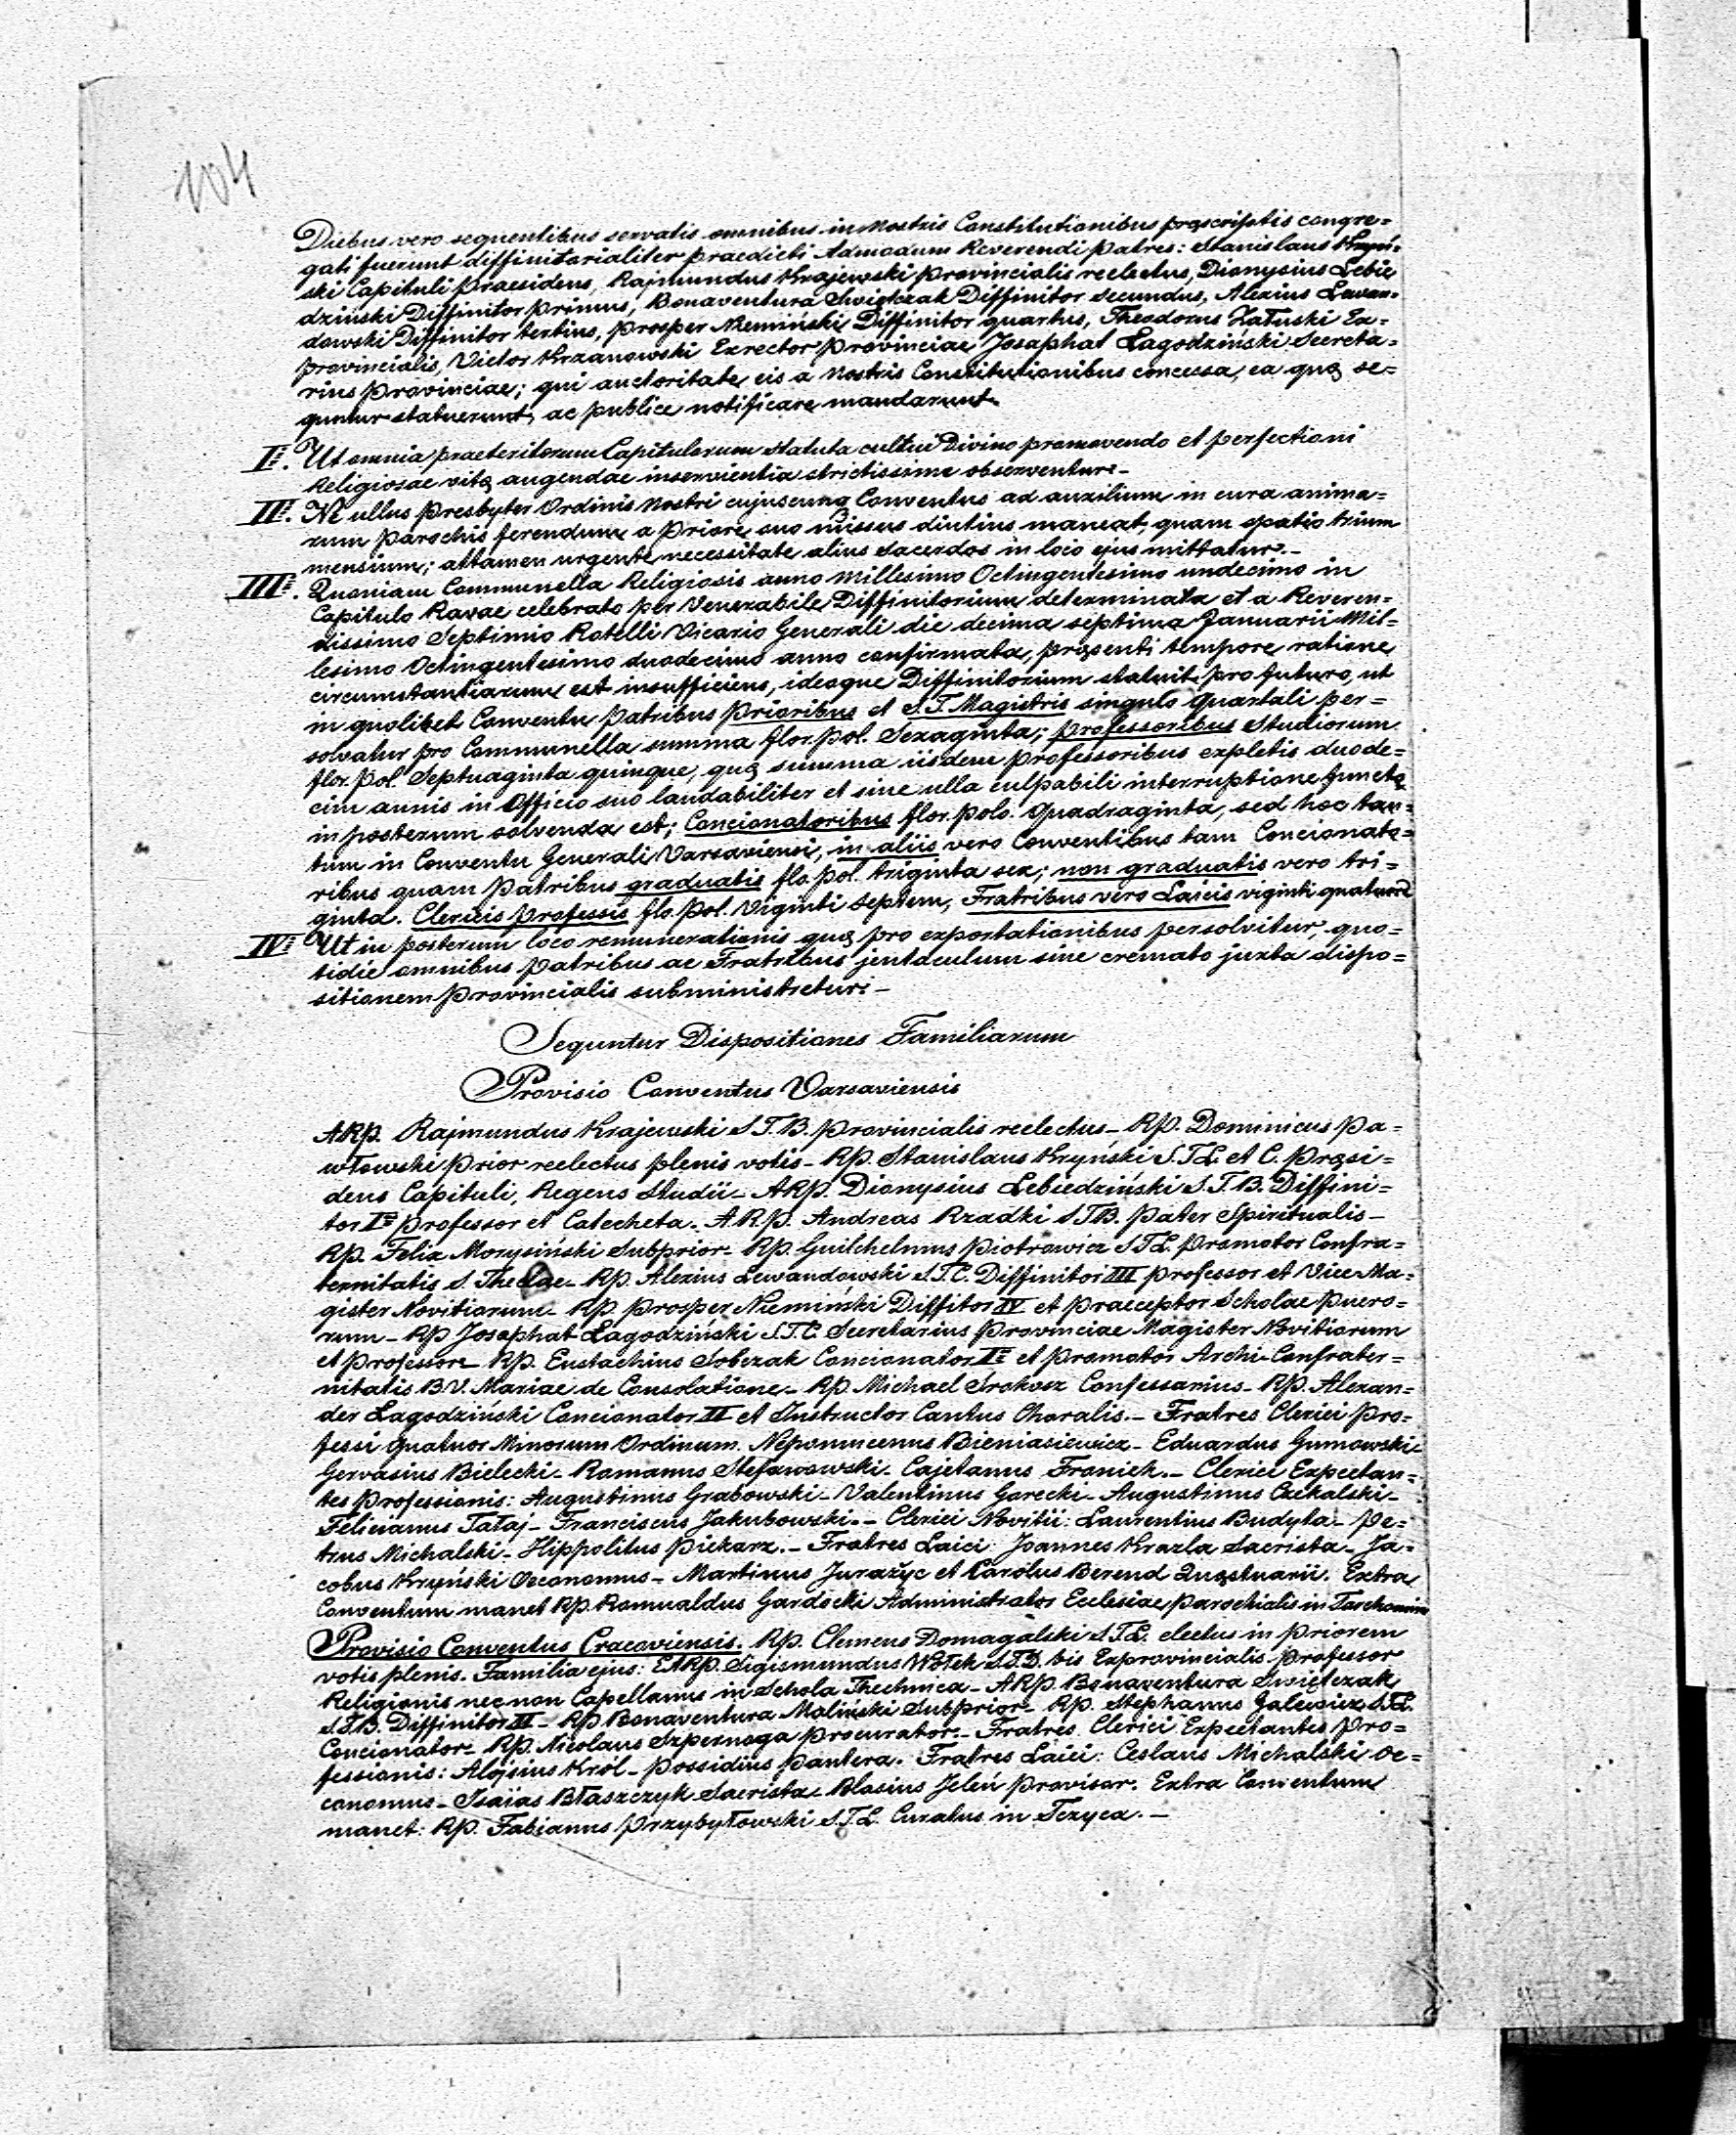 104
Diebus vero sequentibus servatis omnibus in Nostris Constitutionibus pręscriptis congre=
gati fuerunt diffinitorialiter praedicti Admodum Reverendi Patres: Stanislaus Kryń=
ski Capituli Praesidens, Rajmundus Krajewski Provincialis reelectus, Dionysius Lebie
dziński Diffinitor Primus, Bonaventura Swiętczak Diffinitor Secundus, Alexius Lewan=
dowski Diffinitor tertius, Prosper Niemiński Diffinitor quartus, Theodorus Załuski Ex=
provincialis, Victor Krzanowski Exrector Provinciae Josaphat Łagodziński Secreta=
rius Provinciae; qui auctoritate eis a Nostris Constitutionibus concessa, ea quę se=
quntur statuerunt, ac publice notificare mandarunt.
I. Ut omnia praeteritorum Capitulorum Statuta cultui Divino promovendo et perfectioni
Religiosae vitę augendae inservientia strictissime observentur.-
II. Ne ullus Presbyter Ordinis Nostri cujuscunq Conventus ad auxilium in cura anima=
rum Parochis ferendum a Priore suo missus diutius maneat, quam spatio trium
mensium; attamen urgente necessitate alius Sacerdos in loco ejus mittatur.-
III. Quoniam Communella Religiosis anno Millesimo Octingentesimo undecimo in
Capitulo Ravae celebrato per Venerabile Diffinitorium determinata et a Reveren=
dissimo Septimio Rotelli Vicario Generali die decima septima Januarii Mil=
lesimo Octingentesimo duodecimo anno confirmata, pręsenti tempore ratione
circumstantiarum est insufficiens, ideoque Diffinitorium statuit pro futuro, ut
in quolibet Conventu Patribus Prioribus et S.T. Magistris singulo Quartali per=
solvatur pro Communella summa flor. pol. Sexaginta; Professoribus Studiorum
flor. pol. Septuaginta quinque, quę summa iisdem professoribus expletis duode=
cim annis in Officio suo laudabiliter et sine ulla culpabili interruptione functę
in posterum solvenda est; Concionatoribus flor. polo. Quadraginta, sed hoc tan=
tum in Conventu Generali Varsaviensi, in aliis vero Conventibus tam Concionato=
ribus quam Patribus graduatis flo. pol. triginta sex; non graduatis vero tri=
ginta. Clericis professis flo. pol. Viginti Septem, Fratribus vero Laicis viginti quatuor
IV Ut in posterum loco remunerationis quę pro exportationibus persolvitur, quo=
tidie omnibus Patribus ac Fratribus jentaculum sine cremato juxta dispo=
sitionem Provincialis subministretur.-
Sequntur Dispositiones Familiarum
Provisio Conventus Varsaviensis
ARP. Rajmundus Krajewski S.T.B. Provincialis reelectus- RP. Dominicus Pa=
włowski Prior reelectus plenis votis- RP. Stanislaus Kryński S.T.L. et C. Pręsi=
dens Capituli, Regens Studii- ARP. Dionysius Lebiedziński S.T.B. Diffini=
tor I Professor et Catecheta. A.R.P. Andreas Rzadki STB. Pater Spiritualis-
RP. Felix Morysiński Subprior- RP. Guilhelmus Piotrowicz STL. Promotor Confra=
ternitatis S. Theclae- RP. Alexius Lewandowski S.T.C. Diffinitor III Professor et Vice Ma=
gister Novitiorum- RP. Prosper Niemiński Diffitor IV et Praeceptor Scholae Puero=
rum- RP Josaphat Łagodziński S.T.C. Secretarius Provinciae Magister Novitiorum
et Professor- RP. Eustachius Sobczak Concionator I et Promotor Archi-Confrater=
nitatis B.V. Mariae de Consolatione- RP. Michael Srokosz Confessarius- RP. Alexan=
der Łagodziński Concionator II et Instructor Cantus Choralis.- Fratres Clerici Pro=
fessi Quatuor Minorum Ordinum. Nepomucenus Bieniasiewicz- Eduardus Gumowski-
Gervasius Bielecki- Romanus Stefanowski- Cajetanus Froniek.- Clerici Expectan=
tes Professionis: Augustinus Grabowski- Valentinus Gorecki- Augustinus Czekalski-
Felicianus Tataj- Franciscus Jakubowski.- Clerici Novitii: Laurentius Budyta- Pe=
trus Michalski- Hippolitus Piekarz.- Fratres Laici: Joannes Krazla Sacrista- Ja=
cobus Kryński Oeconomus- Martinus Jurażyc et Carolus Berend Quęstuarii. Extra
Conventum manet RP. Romualdus Gardocki Administrator Ecclesiae Parochialis in Tarchomin
Provisio Conventus Cracoviensis. RP. Clemens Domagalski S.T.L. electus in Priorem
votis plenis. Familia ejus: EARP. Sigismundus Wołek S.T.D. bis Exprovincialis Professor
Religionis necnon Capellanus in Schola Thechnica- ARP. Bonaventura Swiętczak
S.T.B. Diffinitor II- RP Bonaventura Maliński Subprior- RP. Stephanus Galewicz S.T.L.
Concionator- RP. Nicolaus Szpernoga Procurator.- Fratres Clerici Expectantes Pro=
fessionis: Alojsius Król- Possidius Pantera. Fratres Laici: Ceslaus Michalski Oe=
conomus- Isaias Błaszczyk Sacrista- Blasius Jeleń Provisor. Extra Conventum
manet: RP. Fabianus Przybyłowski S.T.L. Curatus in Tczyca.-